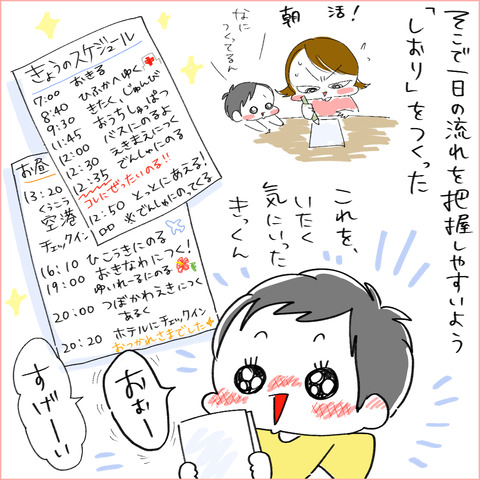 そこで一日の流れを把握しやすいよう
「しおり」をつくった
朝活!
なに
つくってるん
きょうのスケジュール
7:00 おきる
8:40 ひふかへゆく
9:30 きたく、じゅんび
11:45 おうちしゅっぱつ
12:00 バスにのるよ
12:30 えきまえにつく
12:35 でんしゃにのる
コレにぜったいのる!!
12:50 とっとにあえる!
※でんしゃにのってくる
お昼
13:20 くうこう
空港
チェックイン
16:10 ひこうきにのる
19:00 おきなわにつく!
ゆいれーるにのる
20:00 つぼかわえきにつく
あるく
20:20 ホテルにチェックイン
おつかれさまでした
これを、
いたく
気にいった
きっくん
おぉー
すげーい